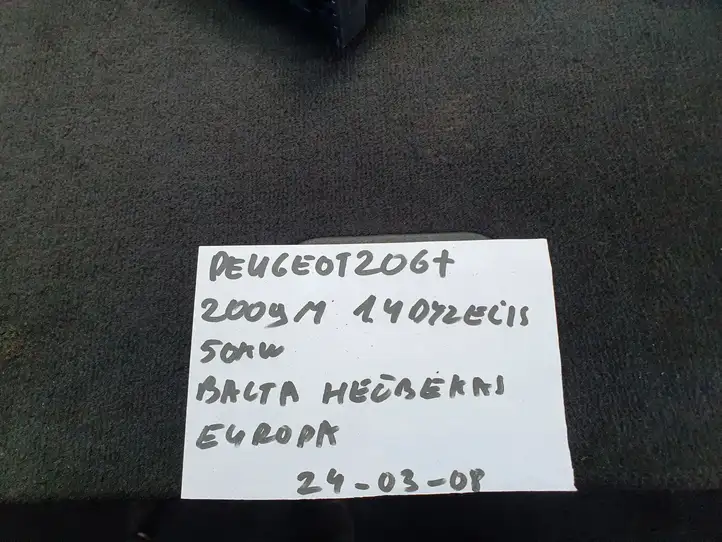 PEUGEOT 206+
2009M 1.4 DYZELIS
50KW
BALTA HEČBEKAS
EUROPA
24-03-08